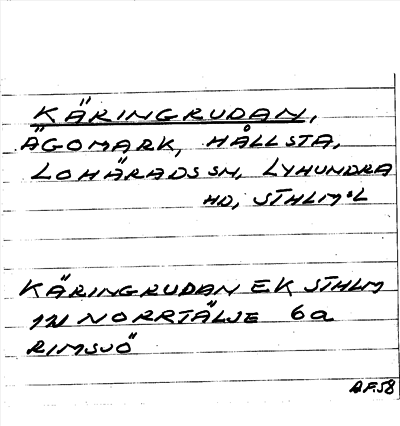 KÄRINGRUDAN,
ÄGOMARK, HÅLLSTA,
LOHÄRADS SN, LYHUNDRA
HD, STHLM:L
KÄRINGRUDAN EK STHLM
1N NORRTÄLJE 6a
RIMSJÖ
AF.58